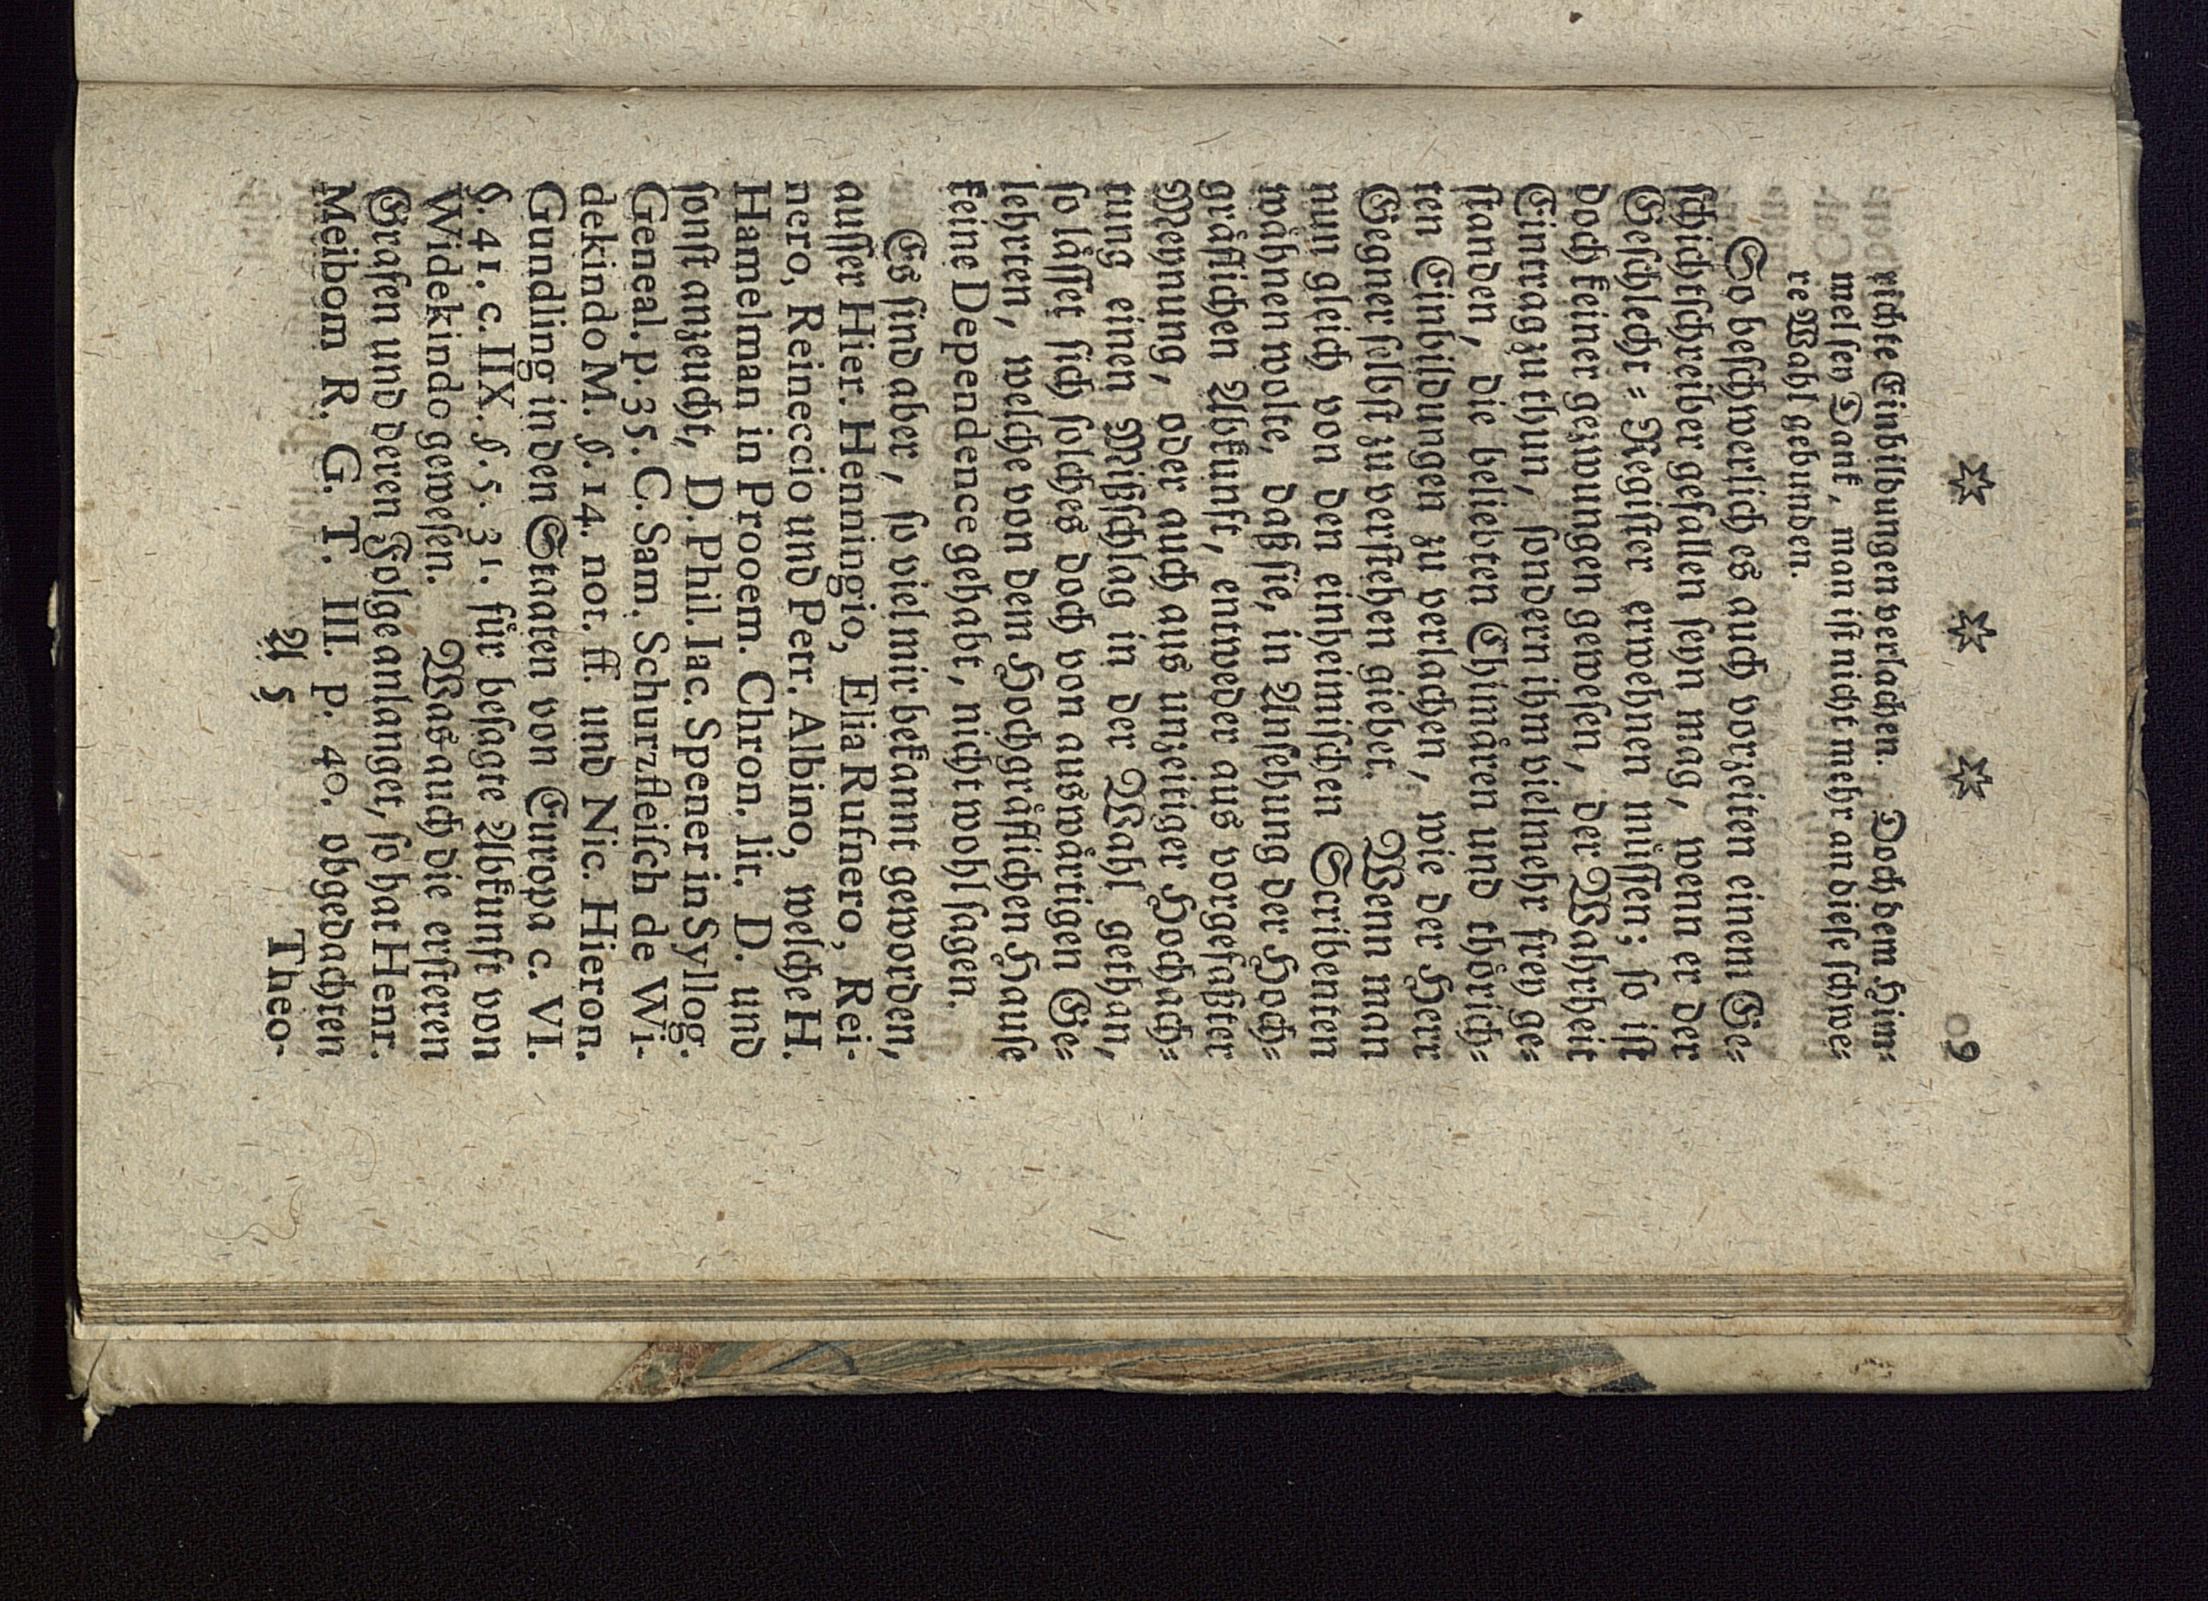 * * * 9
richte Einbildungen verlachen. Doch dem Him⸗
mel sey Dank, man ist nicht mehr an diese schwe⸗
re Wahl gebunden.
So beschwerlich es auch vorzeiten einem Ge⸗
schichtschreiber gefallen seyn mag, wenn er der
Geschlecht⸗Register erwehnen müssen; so ist
doch keiner gezwungen gewesen, der Wahrheit
Eintrag zu thun, sondern ihm vielmehr frey ge⸗
standen, die beliebten Chimären und thörich⸗
ten Einbildungen zu verlachen, wie der Herr
Gegner selbst zu verstehen giebet. Wenn man
nun gleich von den einheimischen Scribenten
wähnen wolte, daß sie, in Ansehung der Hoch⸗
gräflichen Abkunft, entweder aus vorgefaßter
Meynung, oder auch aus unzeitiger Hochach⸗
tung einen Mißschlag in der Wahl gethan,
so lässet sich solches doch von auswärtigen Ge⸗
lehrten, welche von dem Hochgräflichen Hause
keine Dependence gehabt, nicht wohl sagen.
Es sind aber, so viel mir bekannt geworden,
ausser Hier. Henningio, Elia Rufnero, Rei-
nero, Reineccio und Petr. Albino, welche H.
Hamelman in Prooem. Chron. lit. D. und
sonst anzeucht, D. Phil. Iac. Spener in Syllog.
Geneal. p. 35. C. Sam. Schurzfleisch de Wi-
dekindo M. §. 14. not. ff. und Nic. Hieron.
Gundling in den Staaten von Europa c. VI.
§. 41. c. IIX. §. 5. 31. für besagte Abkunft von
Widekindo gewesen. Was auch die ersteren
Grafen und deren Folge anlanget, so hat Henr.
Meibom R. G. T. III. p. 40. obgedachten
A 5 Theo-